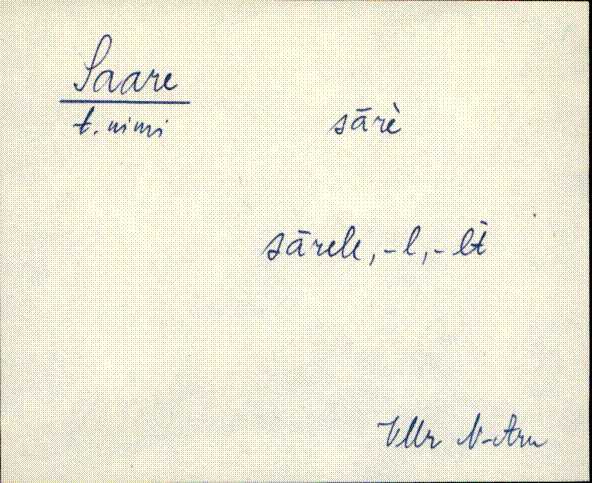 Saare
t. nimi
sārè
sārele, -l, -lt
Vllr N-Aru